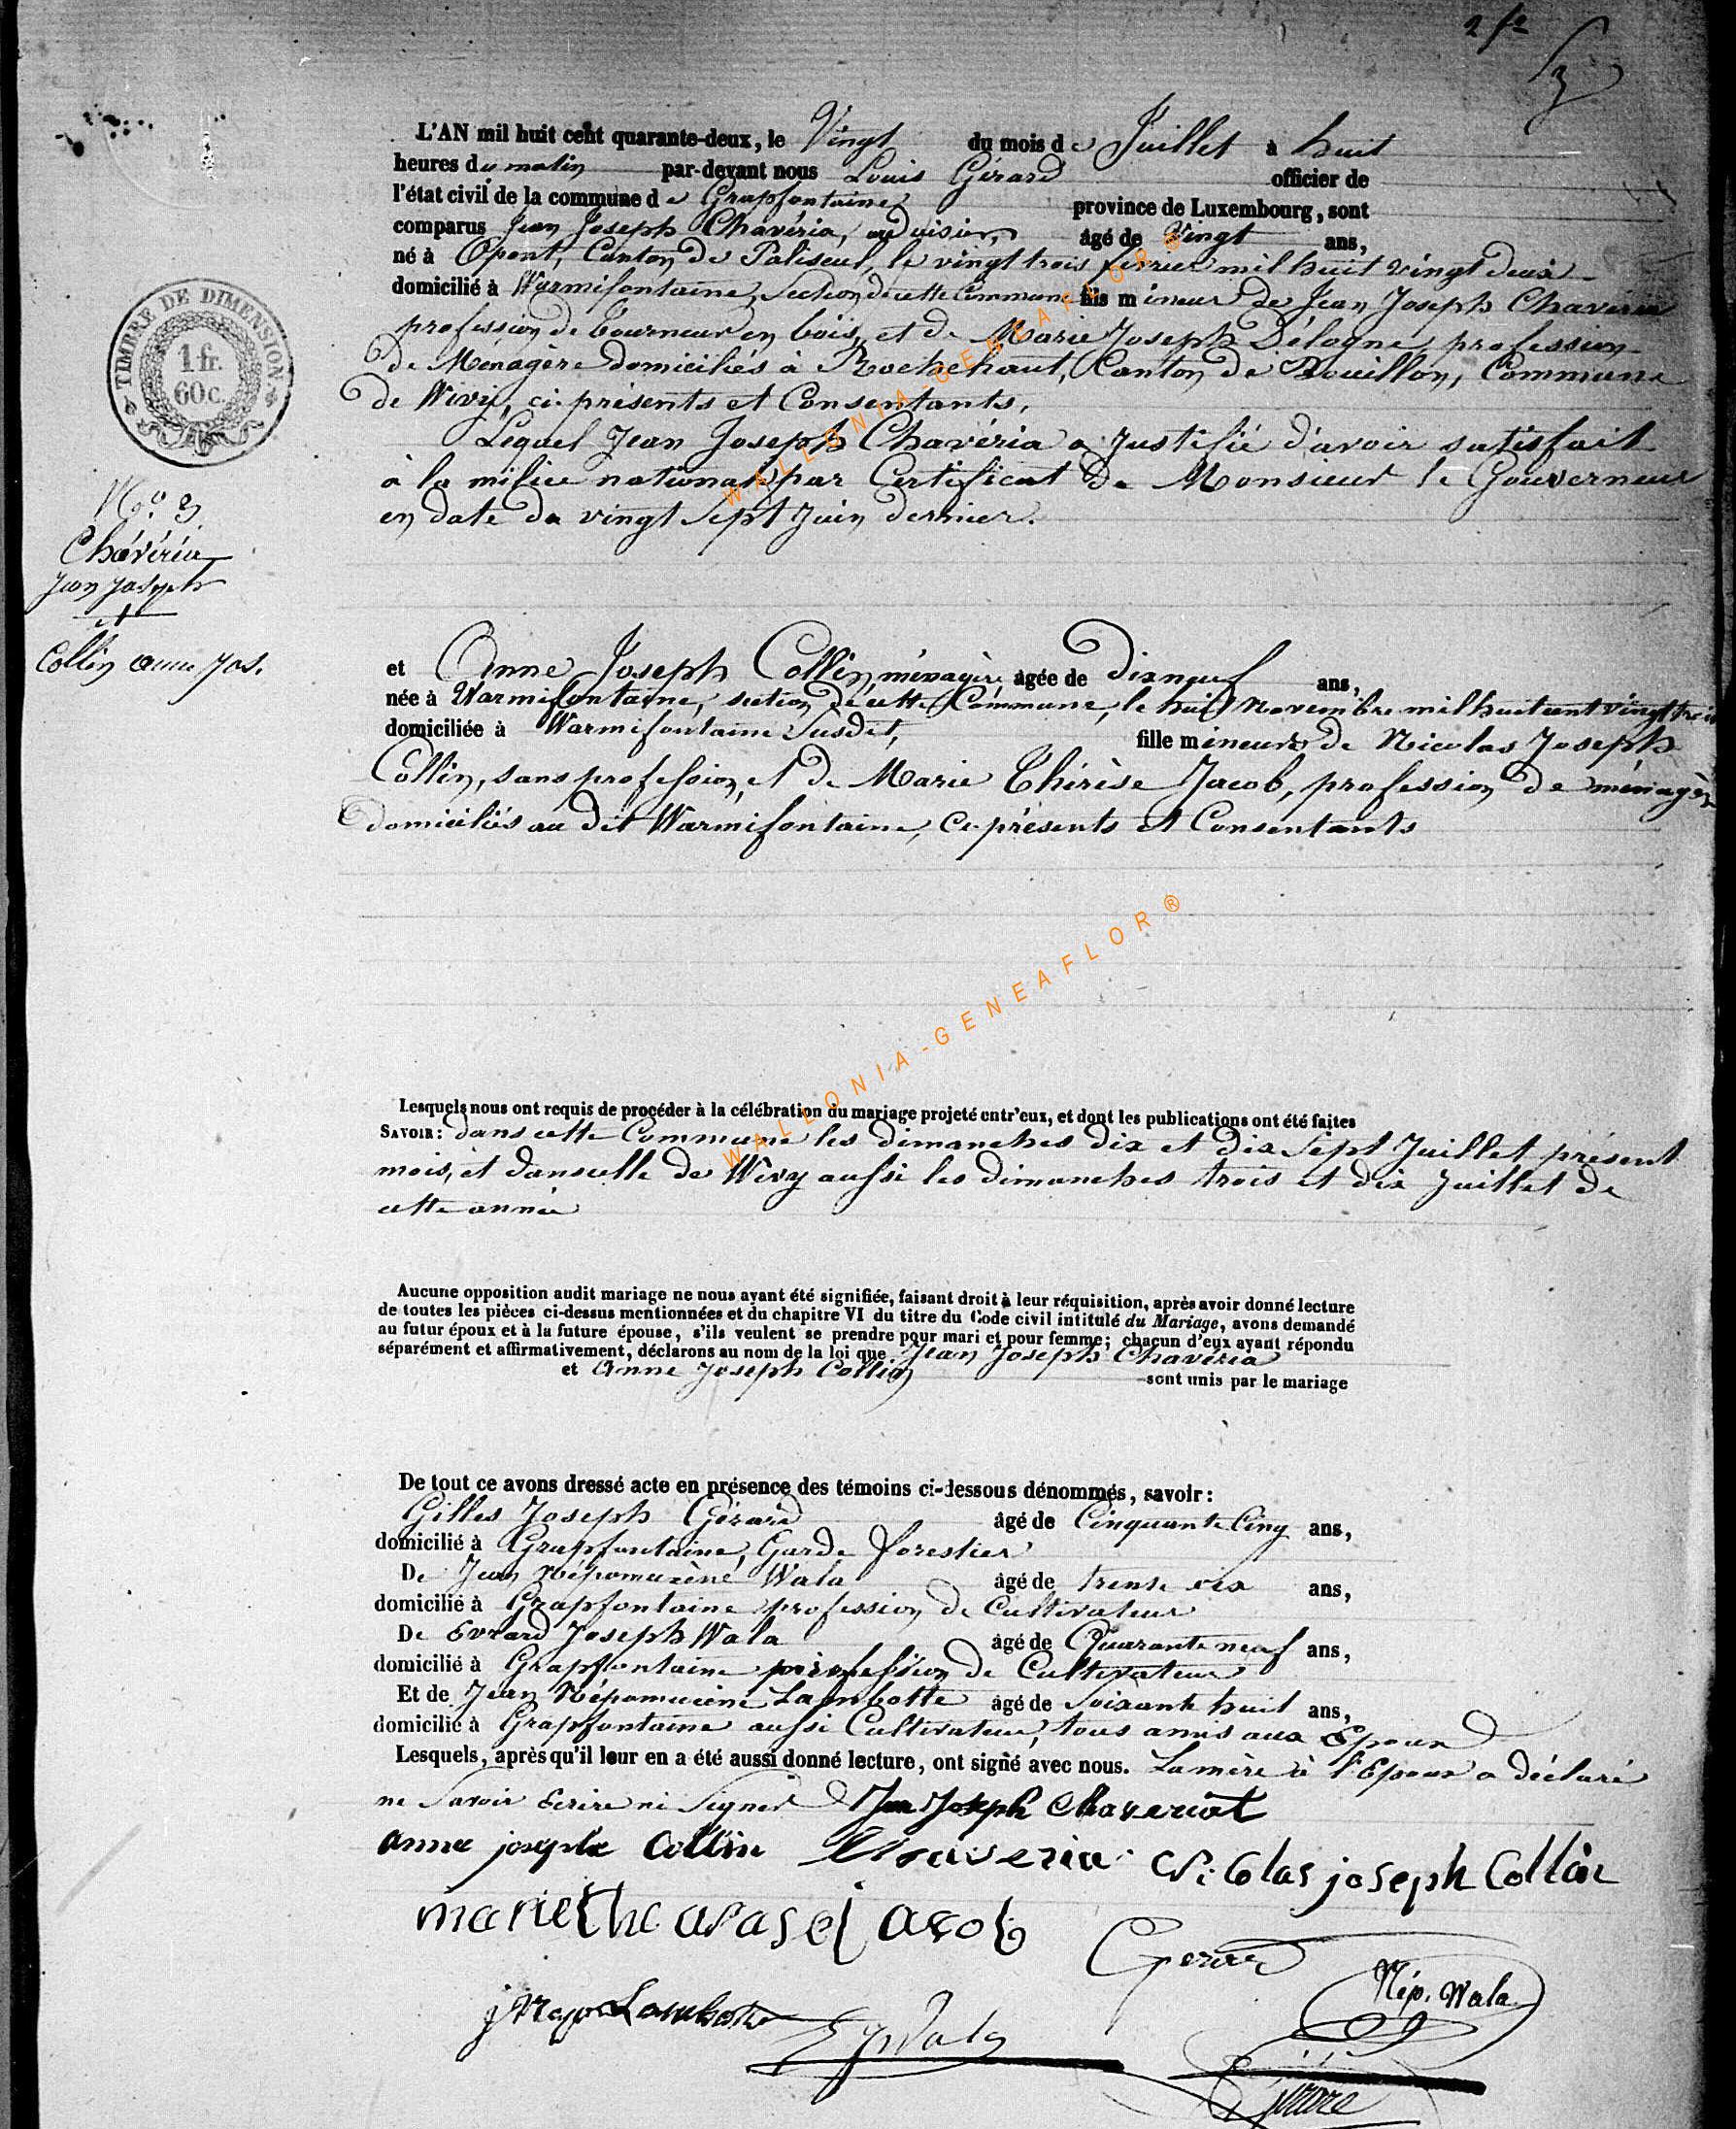 2 fe
L'AN mil huit cent quarante-deux, le Vingt du mois de Juillet à huit
heures du matin par-devant nous Louis Gérard officier de
l'état civil de la commune de Grapfontaine province de Luxembourg, sont
comparus Jean Joseph Chavéria, âgé de Vingt ans,
né à Opont, Canton de Paliseul, le vingt trois février mil huit vingt deux
domicilié à Warmifontaine, Section de cette Commune fils mineur de Jean Joseph Chavéria
profession de tourneur en bois, et de Marie Joseph Délogne, profession
de Ménagère domiciliés à Rochehaut, Canton de Bouillon, Commune
de Vivy, ci-présents et Consentants,
Lequel Jean Joseph Chavéria a Justifié d'avoir satisfait
à la milice national par Certificat de Monsieur le Gouverneur
en date du vingt Sept Juin dernier.
TIMBRE DE DIMENSION
1 fr.
60 c.
No. 3
Chavéria
Jean Joseph
A
Collin anne Jos.
et Anne Joseph Collin ménagère âgée de dixneuf ans,
née à Warmifontaine, section de cette Commune, le huit Novembre mil huit cent vingt trois
domiciliée à Warmifontaine Susdit, fille mineure de Nicolas Joseph
Collin, sans profession, et de Marie Thérèse Jacob, profession de ménagère
domiciliés au dit Warmifontaine, Ce-présents et Consentants
Lesquels nous ont requis de procéder à la célébration du mariage projeté entr'eux, et dont les publications ont été faites
SAVOIR: dans cette Commune les dimanches dix et dix Sept Juillet présent
mois, et dans celle de Vivy aussi les dimanches trois et dix Juillet de
cette année
Aucune opposition audit mariage ne nous ayant été signifiée, faisant droit à leur réquisition, après avoir donné lecture
de toutes les pièces ci-dessus mentionnées et du chapitre VI du titre du Code civil intitulé du Mariage, avons demandé
au futur époux et à la future épouse, s'ils veulent se prendre pour mari et pour femme; chacun d'eux ayant répondu
séparément et affirmativement, déclarons au nom de la loi que Jean Joseph Chavéria
et Anne Joseph Collin sont unis par le mariage
De tout ce avons dressé acte en présence des témoins ci-dessous dénommés, savoir:
Gilles Joseph Gérard âgé de Cinquante Cinq ans,
domicilié à Grapfontaine, Garde forestier
De Jean Népomucène Wala âgé de trente six ans,
domicilié à Grapfontaine profession de Cultivateur
De Evrard Joseph Wala âgé de Quarante neuf ans,
domicilié à Grapfontaine profession de Cultivateur
Et de Jean Népomucène Lambotte âgé de Soixante huit ans,
domicilié à Grapfontaine aussi Cultivateur, tous amis aux Epoux
Lesquels, après qu'il leur en a été aussi donné lecture, ont signé avec nous. La mère à l'Epoux a déclaré
ne Savoir Ecrire ni Signer Jean Joseph Chaveriat
anne joseph Collin Chaveria Nicolas joseph Collin
marie the arase jacob Gerard
Nép. Wala
Lambotte EJWala
Gérard
WALLONIA-GENEAFLOR®
WALLONIA-GENEAFLOR®